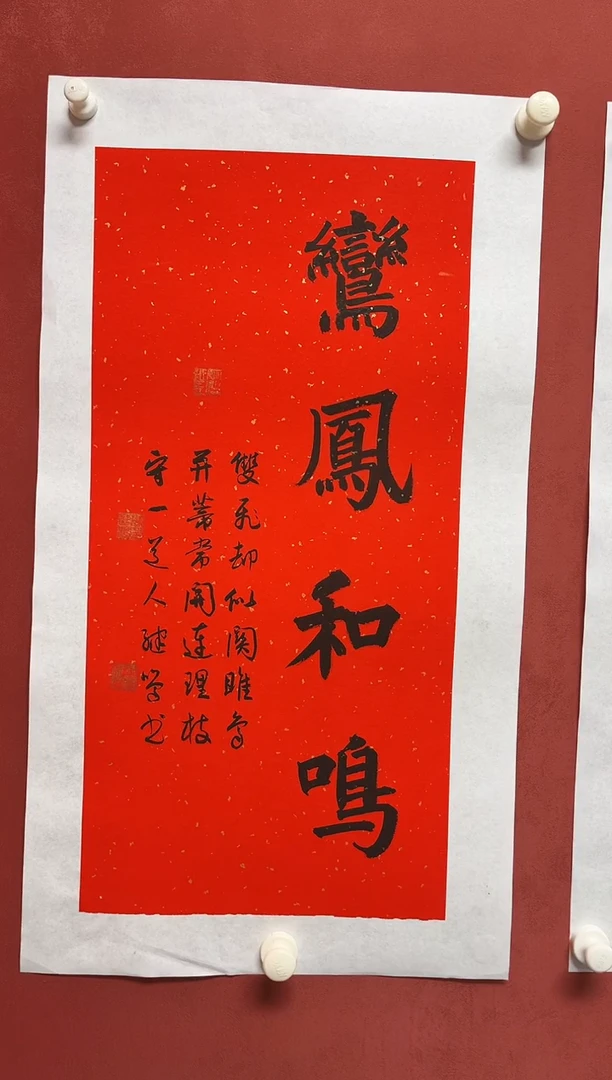 鸞鳳和鳴
雙飛却似關雎鳥
并蒂常開連理枝
守一道人继學书